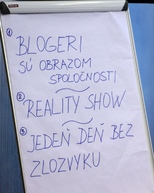 ① BLOGERI
SÚ OBRAZOM
SPOLOČNOSTI
② REALITY SHOW
③ JEDEŇ DEŇ BEZ
ZLOZVYKU